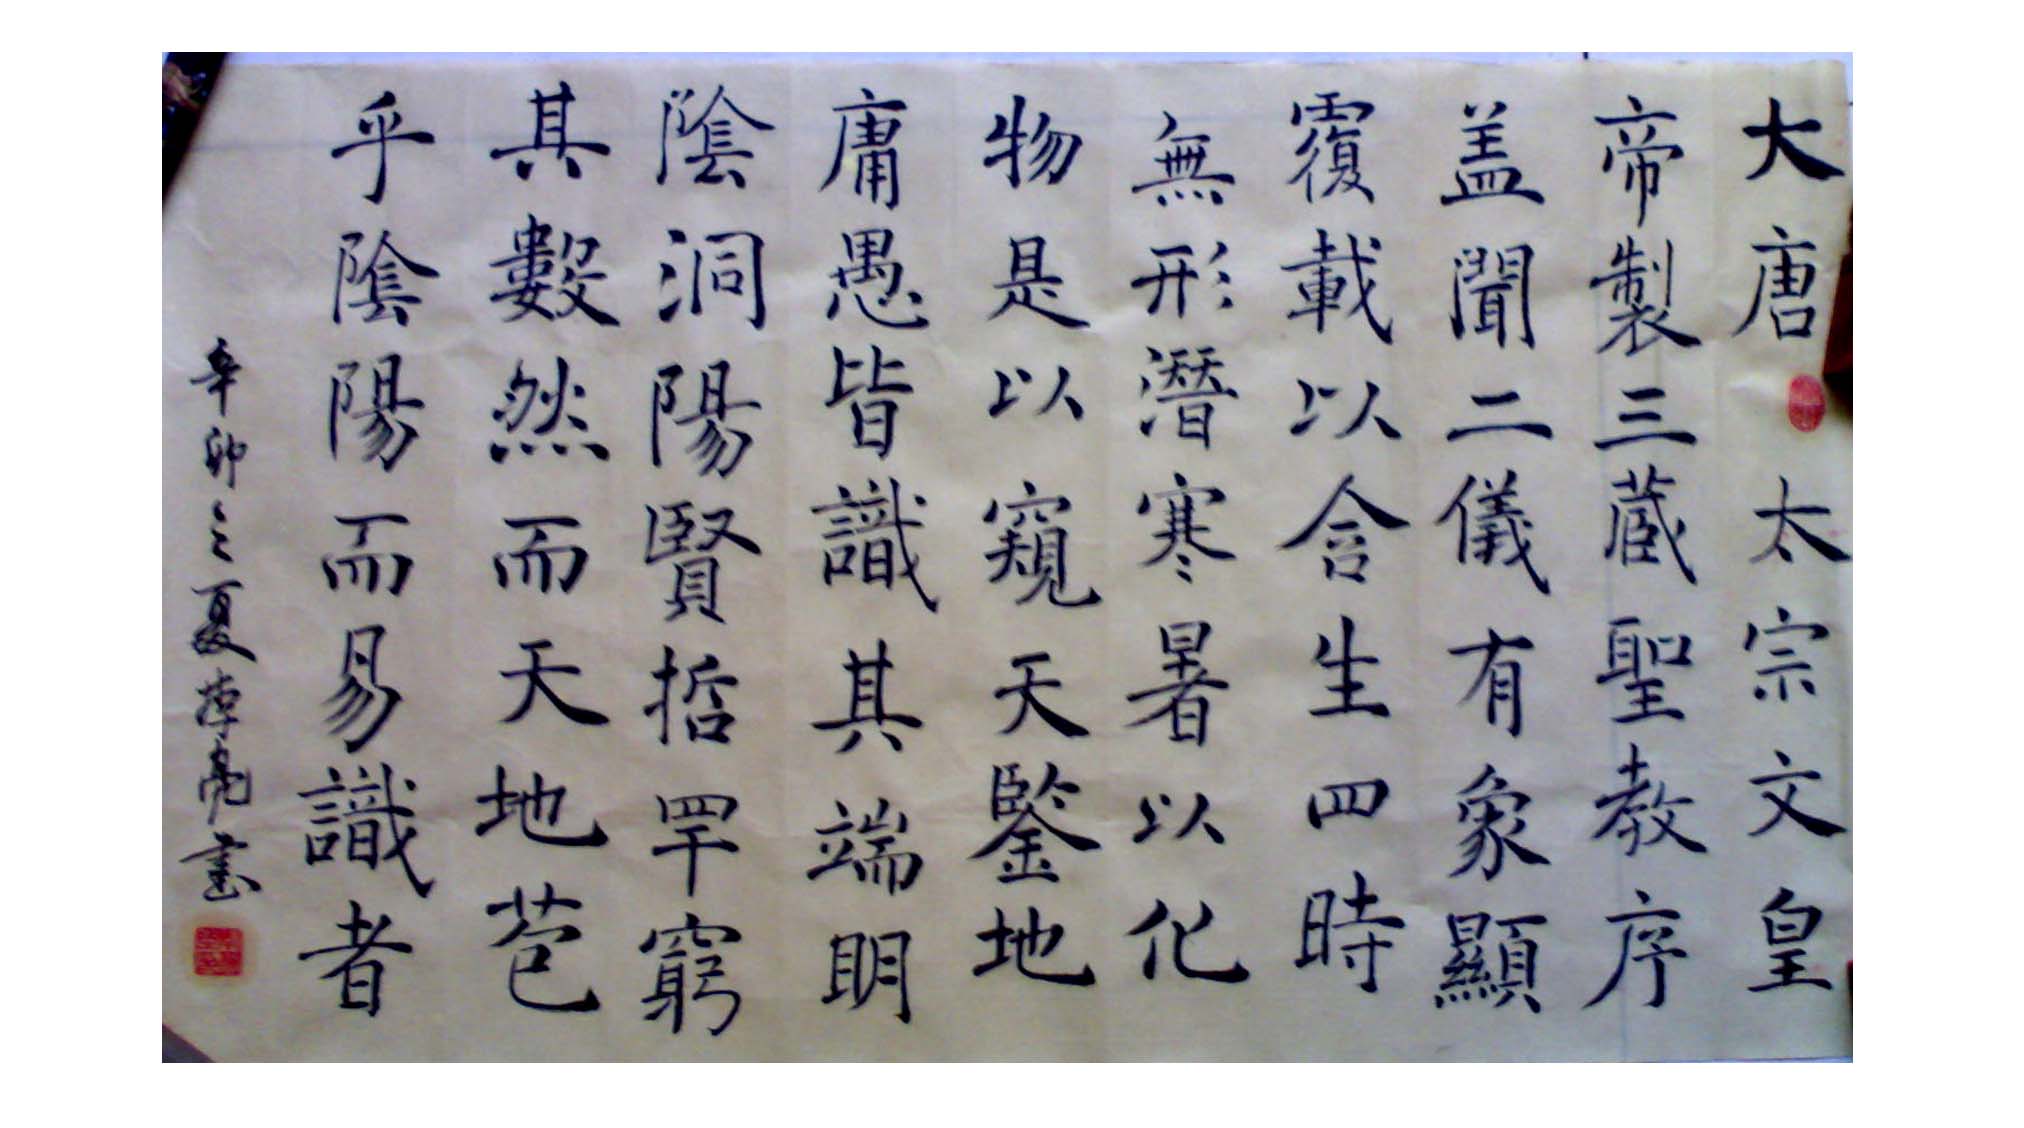 大唐太宗文皇
帝製三蔵聖教序
盖聞二儀有象顯
覆載以含生四時
無形潛寒暑以化
物是以窺天鑒地
庸愚皆識其端明
陰洞陽賢哲罕窮
其數然而天地苞
乎陰陽而易識者
辛卯之夏 亮書